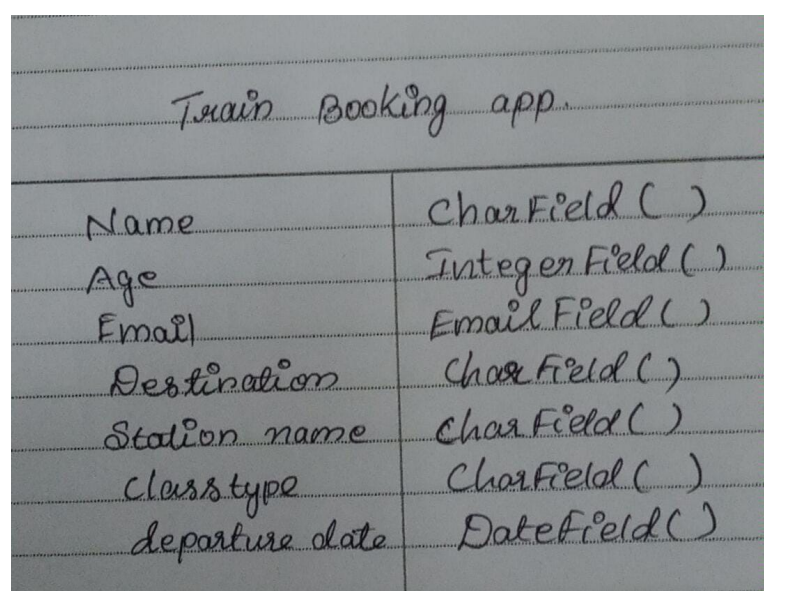 Train Booking app.
Name CharField ( )
Age IntegerField ( )
Email EmailField ( )
Destination CharField ( )
Station name CharField ( )
Class type CharField ( )
departure date DateField ( )